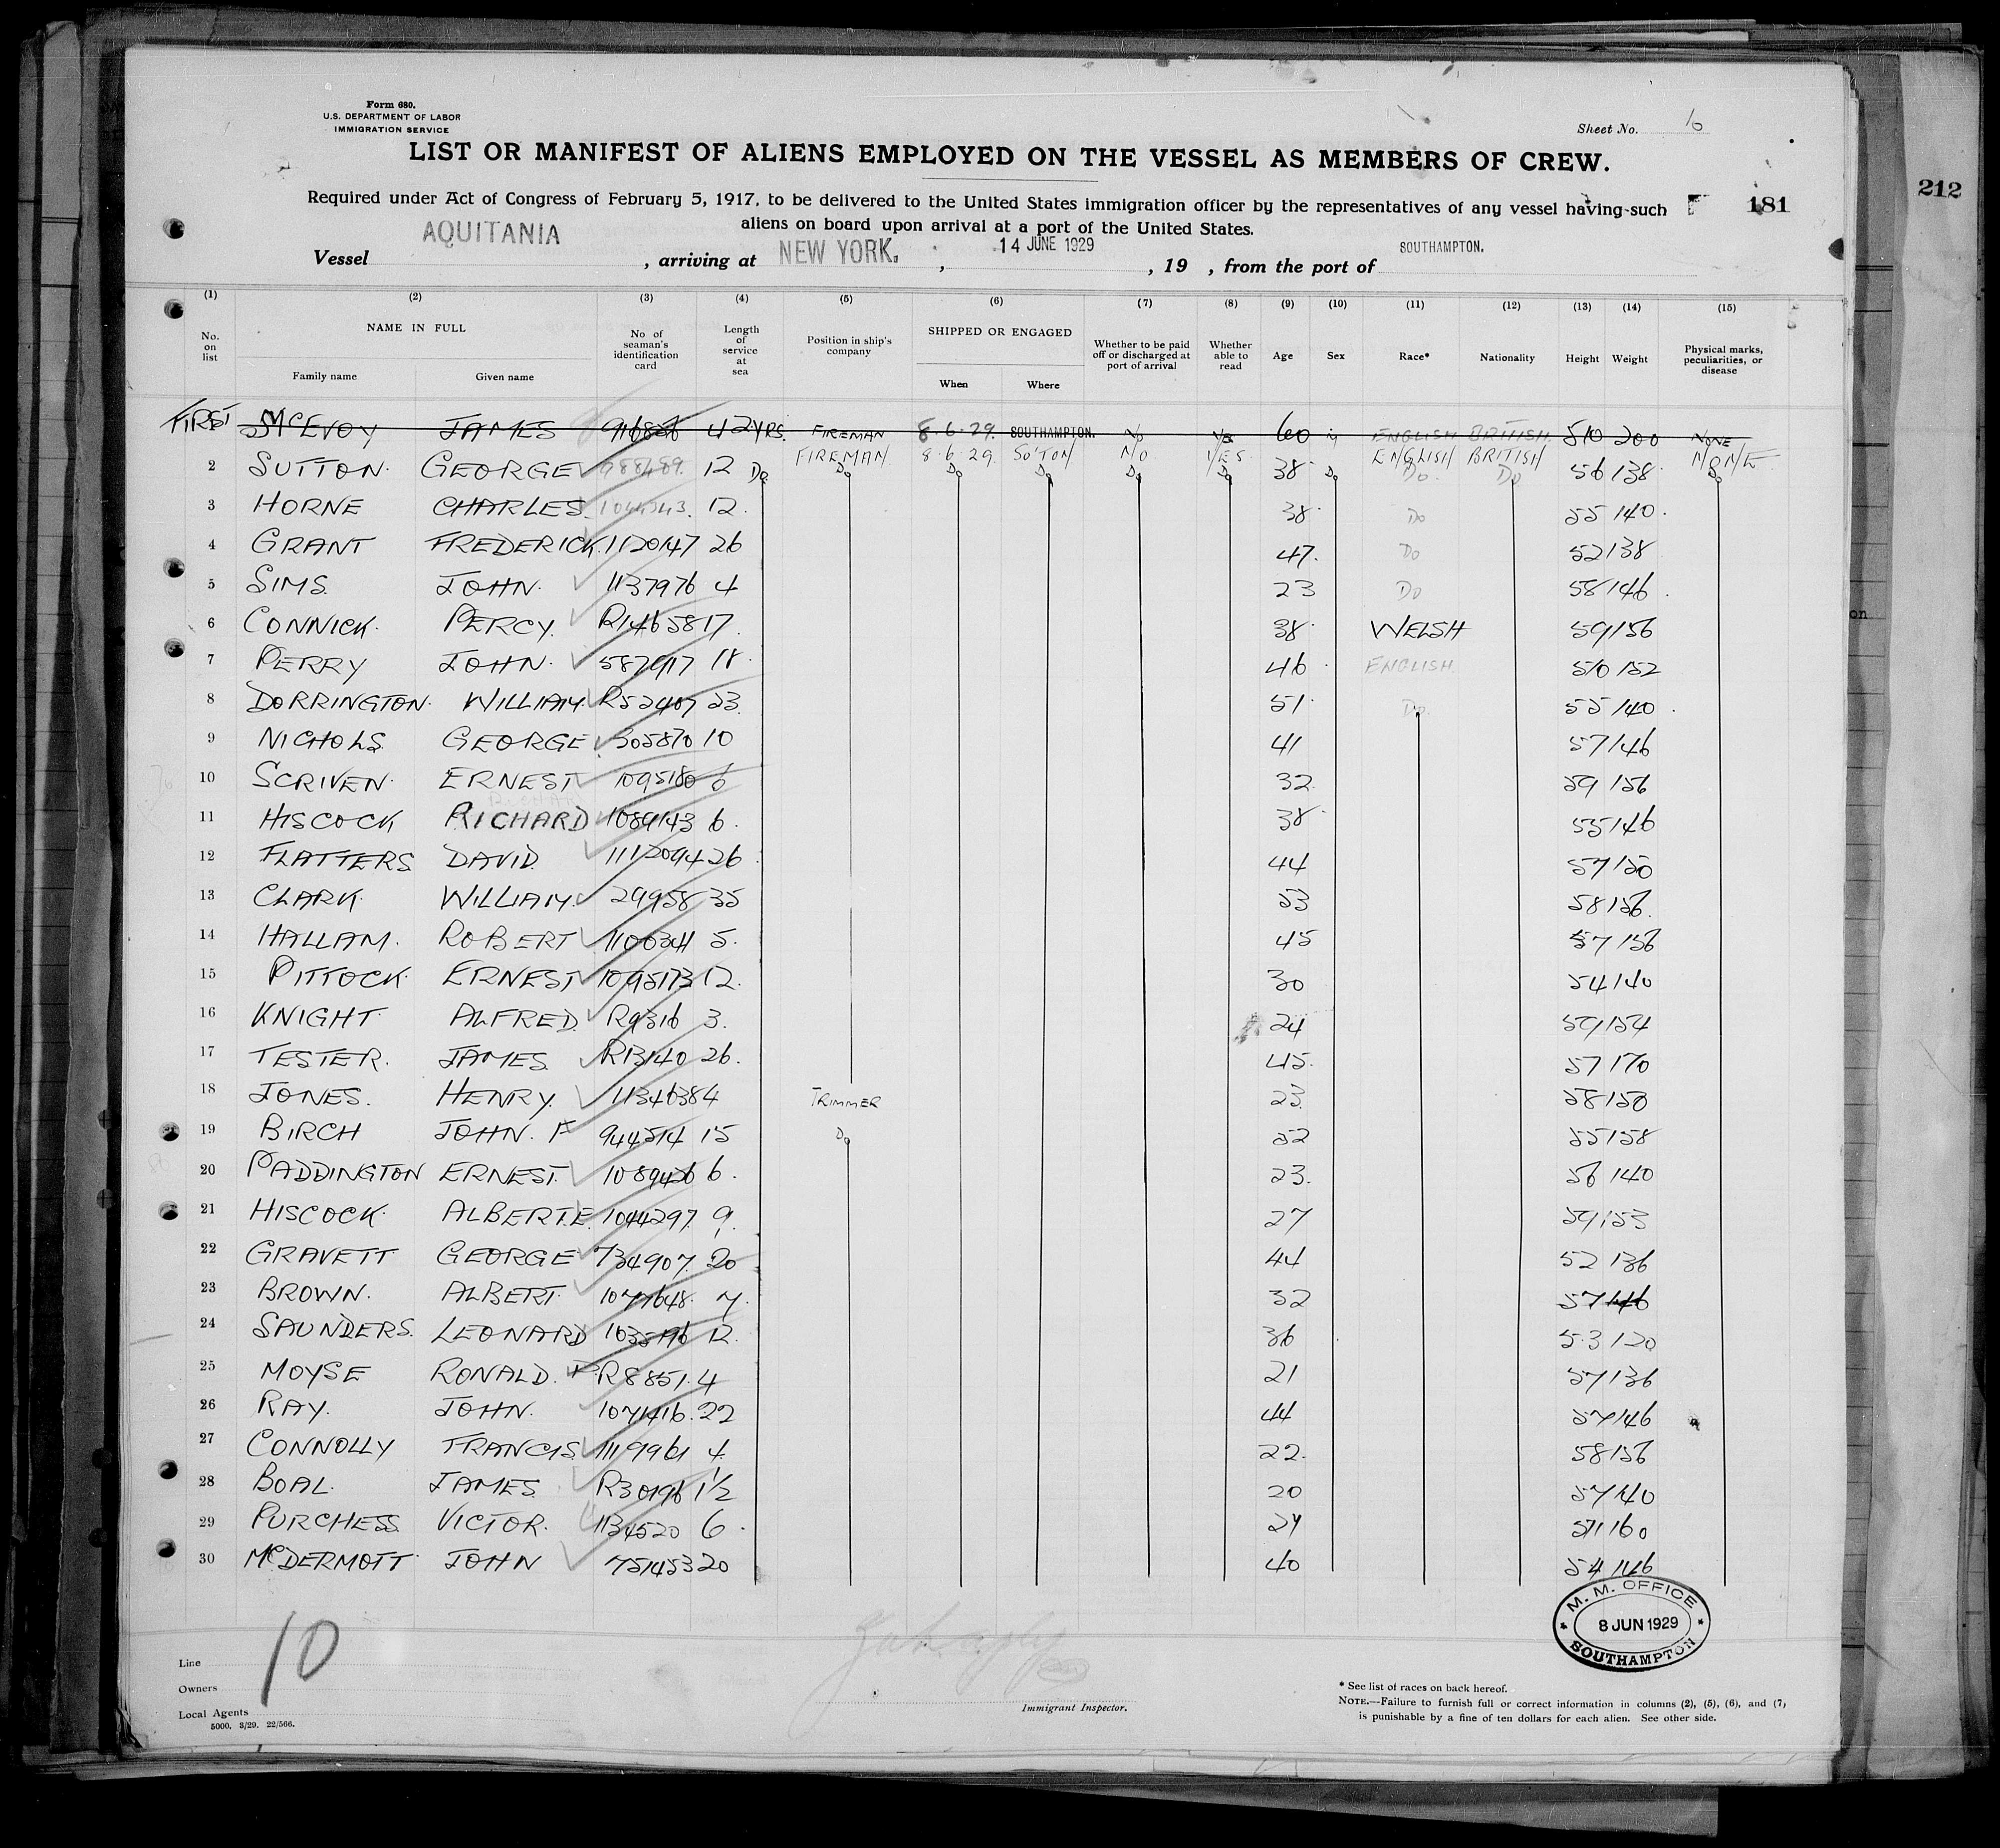 Form 680.
U.S. DEPARTMENT OF LABOR
IMMIGRATION SERVICE
Sheet No. 16
LIST OR MANIFEST OF ALIENS EMPLOYED ON THE VESSEL AS MEMBERS OF CREW.
Required under Act of Congress of February 5, 1917, to be delivered to the United States immigration officer by the representatives of any vessel having such
aliens on board upon arrival at a port of the United States.
181
212
Vessel AQUITANIA, arriving at NEW YORK., 14 JUNE 1929, 19 , from the port of SOUTHAMPTON.
(1) (2) (3) (4) (5) (6) (7) (8) (9) (10) (11) (12) (13) (14) (15)
No. on list NAME IN FULL Family name Given name No. of seaman's identification card Length of service at sea Position in ship's company SHIPPED OR ENGAGED When Where Whether to be paid off or discharged at port of arrival Whether able to read Age Sex Race* Nationality Height Weight Physical marks, peculiarities, or disease
FIRST McEVOY JAMES 916826 42 YRS. FIREMAN 8.6.29. SOUTHAMPTON. No Yes 60 M ENGLISH BRITISH 510 200 NONE
FIREMAN 8.6.29. SO'TON NO YES ENGLISH BRITISH NONE
2 SUTTON. GEORGE 12 Do Do Do Do Do Do 38 Do Do Do 56 138 Do
3 HORNE CHARLES. 12. 38 Do 55 140.
4 GRANT FREDERICK. 1120147 26 47. Do 52 138
5 SIMS. JOHN. 1137976 4 23 Do 58 146.
6 CONNICK. PERCY. R14658 17. 38 WELSH 59 156
7 PERRY JOHN. 587917 18. 46 ENGLISH 510 152
8 DORRINGTON. WILLIAM. R52407 23. 51. Do. 55 140.
9 NICHOLS. GEORGE 305870 10 41 57 146
10 SCRIVEN. ERNEST 1095180 6 32 59 156
11 HISCOCK RICHARD 1089143 6. 38 55 146
12 FLATTERS DAVID. 1112094 26 44 57 150
13 CLARK. WILLIAM. 29958 35 53 58 156.
14 HALLAM. ROBERT 1100341 5. 45 57 156
15 PITTOCK. ERNEST 1095173 12. 30 54 140
16 KNIGHT. ALFRED. R9316 3. 24 59 154
17 TESTER. JAMES. R13140 26. 45. 57 170
18 JONES. HENRY. 1134638 4 TRIMMER 23. 58 150
19 BIRCH JOHN. F 944514 15 Do 52 55 158
20 PADDINGTON ERNEST. 1089426 6. 23. 56 140
21 HISCOCK. ALBERT.E. 1044297 9. 27 59 153
22 GRAVETT GEORGE 734907. 20 44 52 136
23 BROWN. ALBERT. 1077648. 7. 32 57 146
24 SAUNDERS. LEONARD 12. 36 5.3 120
25 MOYSE RONALD. F R8851. 4 21 57 136
26 RAY. JOHN. 1071416. 22 44 57 146
27 CONNOLLY FRANCIS 1119961 4. 22. 58 156
28 BOAL. JAMES. R30196 1½ 20 57 140
29 PURCHESS VICTOR. 1134520 6. 24 511 160
30 McDERMOTT. JOHN 751453 20 40 54 146
M. M. OFFICE
8 JUN 1929
SOUTHAMPTON
10
Line
Owners
Local Agents
5000. 3/29. 22/566.
Immigrant Inspector.
* See list of races on back hereof.
NOTE.—Failure to furnish full or correct information in columns (2), (5), (6), and (7),
is punishable by a fine of ten dollars for each alien. See other side.